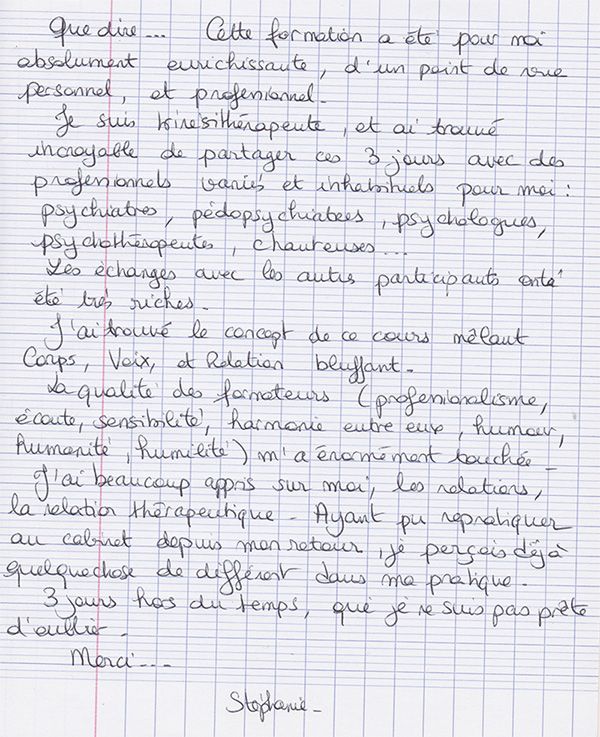 Que dire... Cette formation a été pour moi
absolument enrichissante, d'un point de vue
personnel, et professionnel.
Je suis kinésithérapeute, et ai trouvé
incroyable de partager ces 3 jours avec des
professionnels variés et inhabituels pour moi :
psychiatres, pédopsychiatres, psychologues,
psychothérapeutes, chanteuses...
Les échanges avec les autres participants onté
été très riches.
J'ai trouvé le concept de ce cours mêlant
Corps, Voix, et Relation bluffant.
La qualité des formateurs (professionalisme,
écoute, sensibilité, harmonie entre eux, humour,
humanité, humilité) m'a énormément touchée.
J'ai beaucoup appris sur moi, les relations,
la relation thérapeutique. Ayant pu repratiquer
au cabinet depuis mon retour, je perçois déjà
quelquechose de différent dans ma pratique.
3 jours hors du temps, que je ne suis pas prête
d'oublier.
Merci...
Stéphanie.